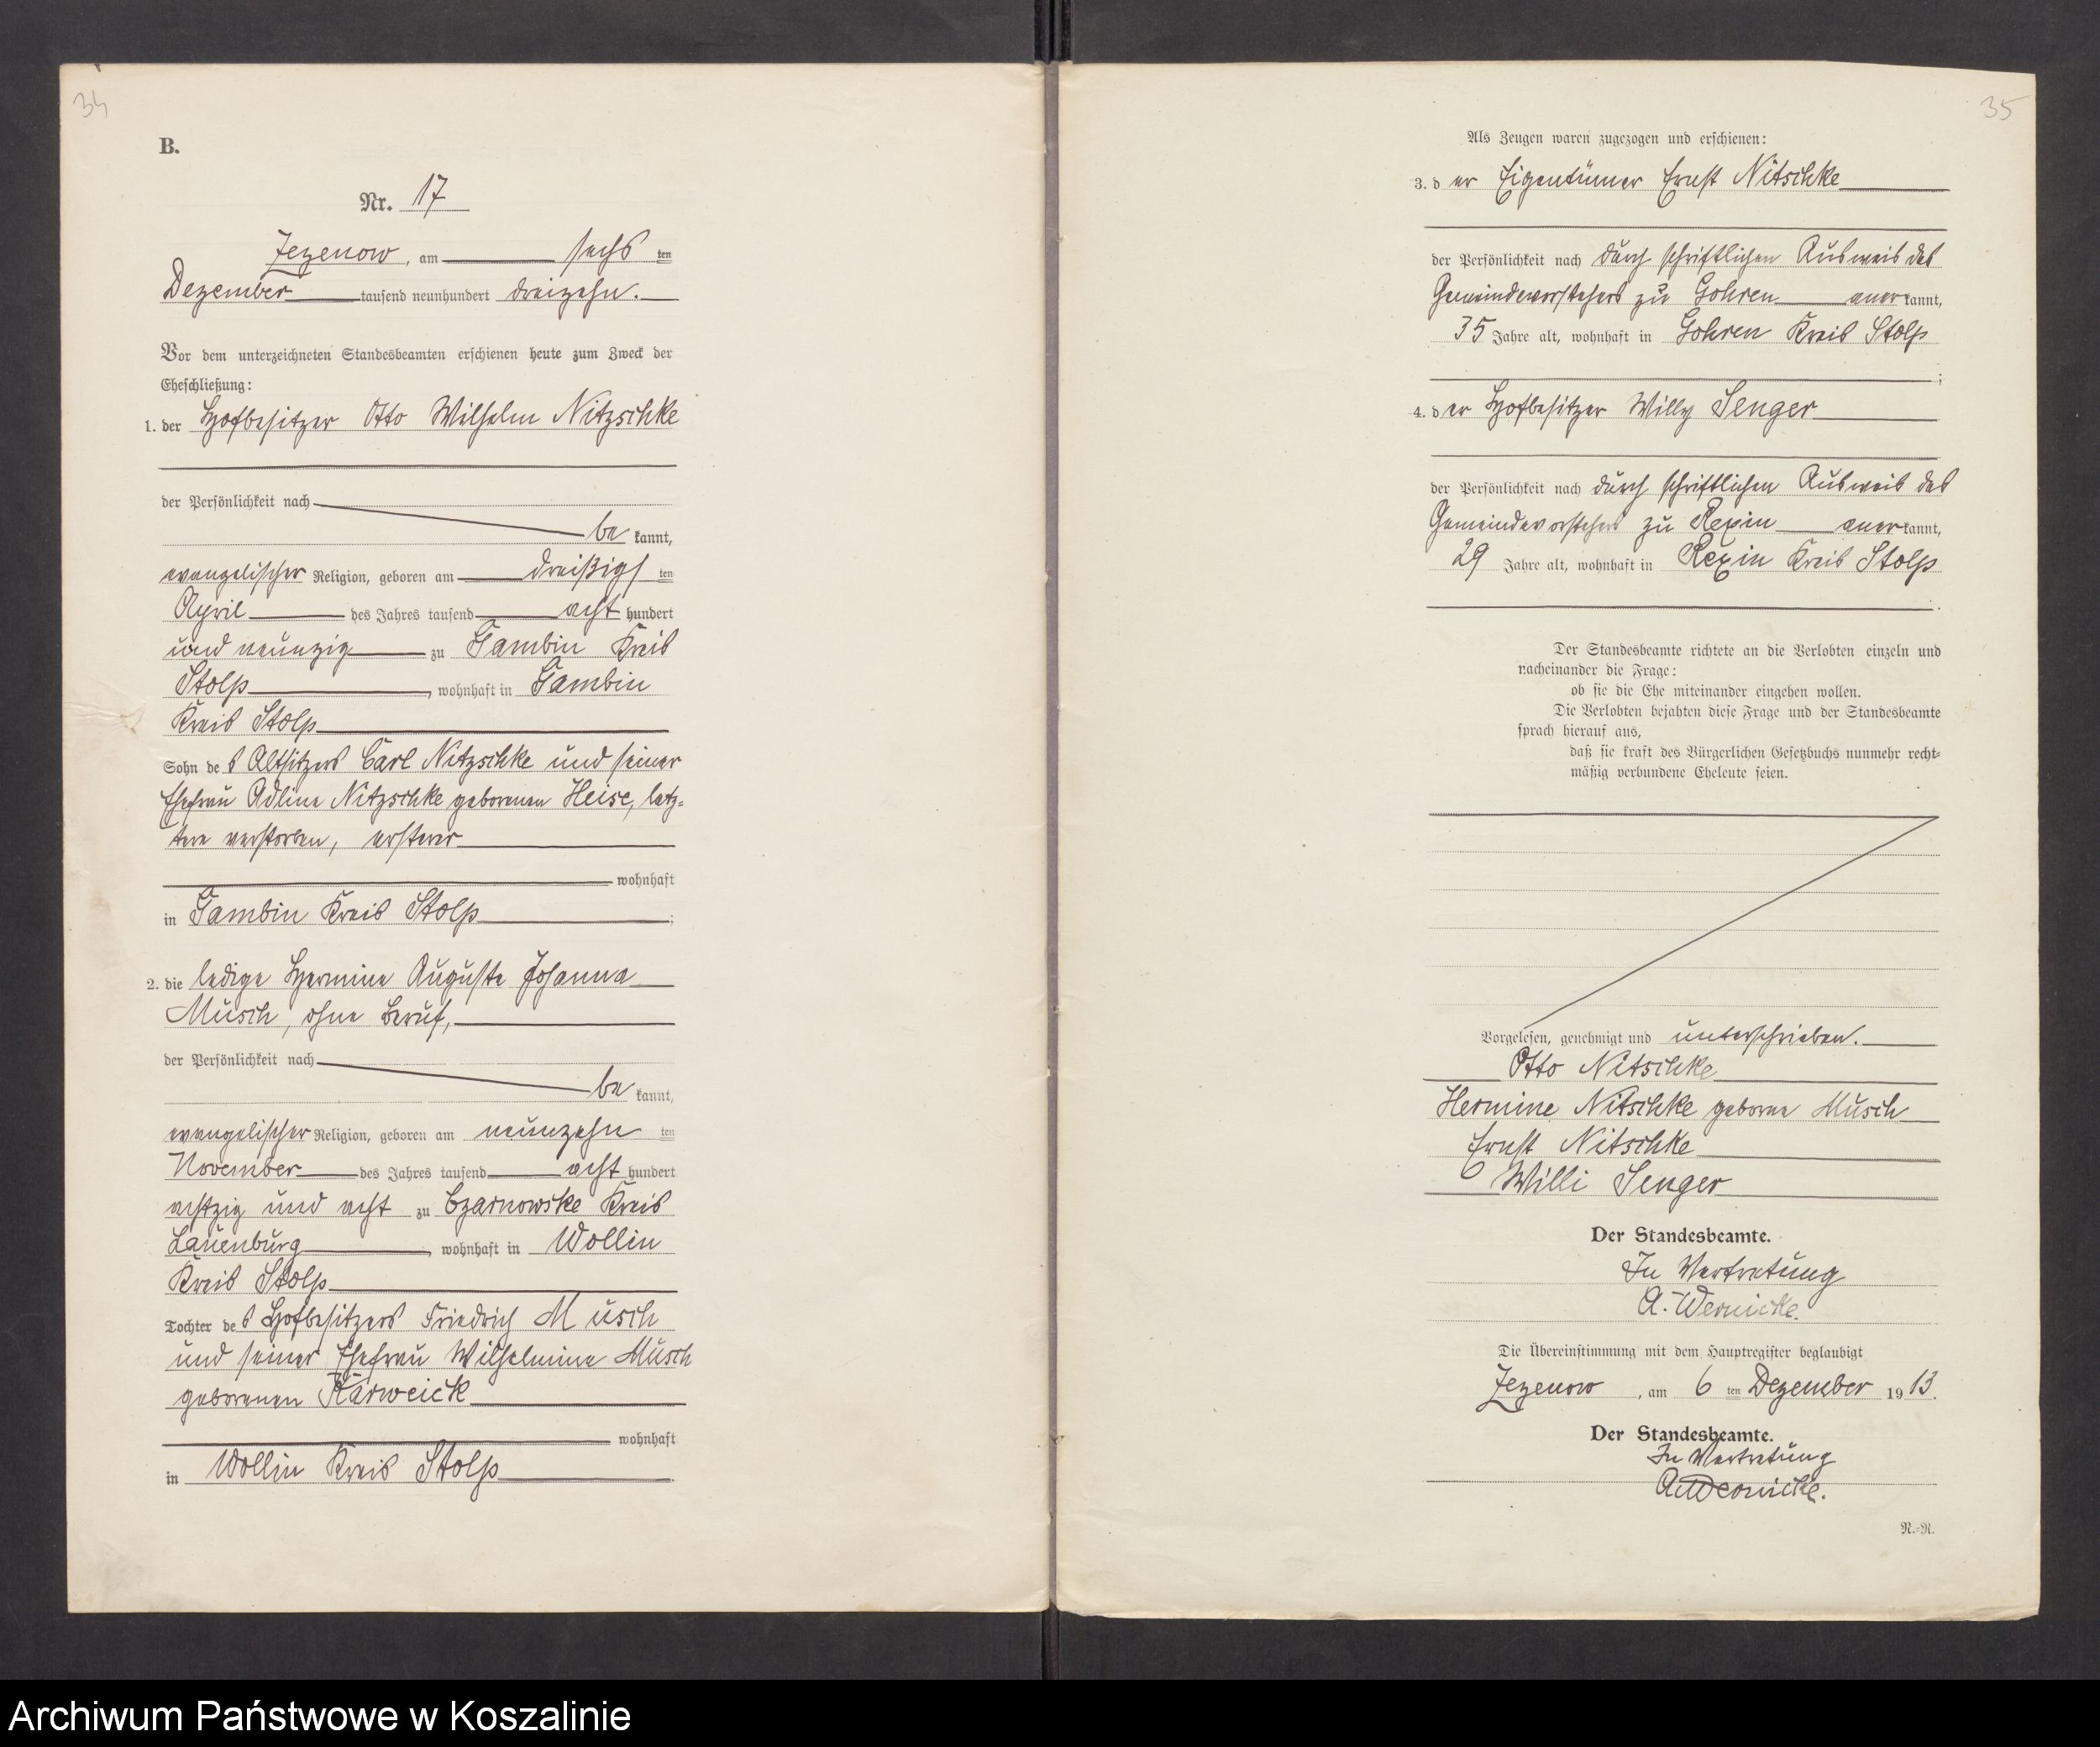 34
B.
Nr. 17
Zezenow, am sechs ten
Dezember tausend neunhundert dreizehn.
Vor dem unterzeichneten Standesbeamten erschienen heute zum Zweck der
Eheschließung:
1. der Hofbesitzer Otto Wilhelm Nitzschke
der Persönlichkeit nach
be kannt,
evangelischer Religion, geboren am dreißigs ten
April des Jahres tausend acht hundert
und neunzig zu Gambin Kreis
Stolp, wohnhaft in Gambin
Kreis Stolp
Sohn des Altsitzers Carl Nitzschke und seiner
Ehefrau Adline Nitzschke geborenen Heise, letz=
tere verstorben, ersterer
wohnhaft
in Gambin Kreis Stolp;
2. die ledige Hermine Auguste Johanna
Müsch, ohne Beruf,
der Persönlichkeit nach
be kannt,
evangelischer Religion, geboren am neunzehn ten
November des Jahres tausend acht hundert
achtzig und acht zu Czarnowske Kreis
Lauenburg, wohnhaft in Wollin
Kreis Stolp
Tochter des Hofbesitzers Friedrich Müsch
und seiner Ehefrau Wilhelmine Müsch
geborenen Karweick
wohnhaft
in Wollin Kreis Stolp.
35
Als Zeugen waren zugezogen und erschienen:
3. der Eigentümer Ernst Nitschke
der Persönlichkeit nach durch schriftlichen Ausweis des
Gemeindevorstehers zu Gohren anerkannt,
35 Jahre alt, wohnhaft in Gohren Kreis Stolp
;
4. der Hofbesitzer Willy Senger
der Persönlichkeit nach durch schriftlichen Ausweis des
Gemeindevorstehers zu Rexin anerkannt,
29 Jahre alt, wohnhaft in Rexin Kreis Stolp
.
Der Standesbeamte richtete an die Verlobten einzeln und
nacheinander die Frage:
ob sie die Ehe miteinander eingehen wollen.
Die Verlobten bejahten diese Frage und der Standesbeamte
sprach hierauf aus,
daß sie kraft des Bürgerlichen Gesetzbuchs nunmehr recht=
mäßig verbundene Eheleute seien.
Vorgelesen, genehmigt und unterschrieben.
Otto Nitschke
Hermine Nitschke geborene Müsch
Ernst Nitschke
Willi Senger
Der Standesbeamte.
In Vertretung
A. Wernicke.
Die Übereinstimmung mit dem Hauptregister beglaubigt
Zezenow, am 6 ten Dezember 1913.
Der Standesbeamte.
In Vertretung
A. Wernicke.
N.=N.
Archiwum Państwowe w Koszalinie